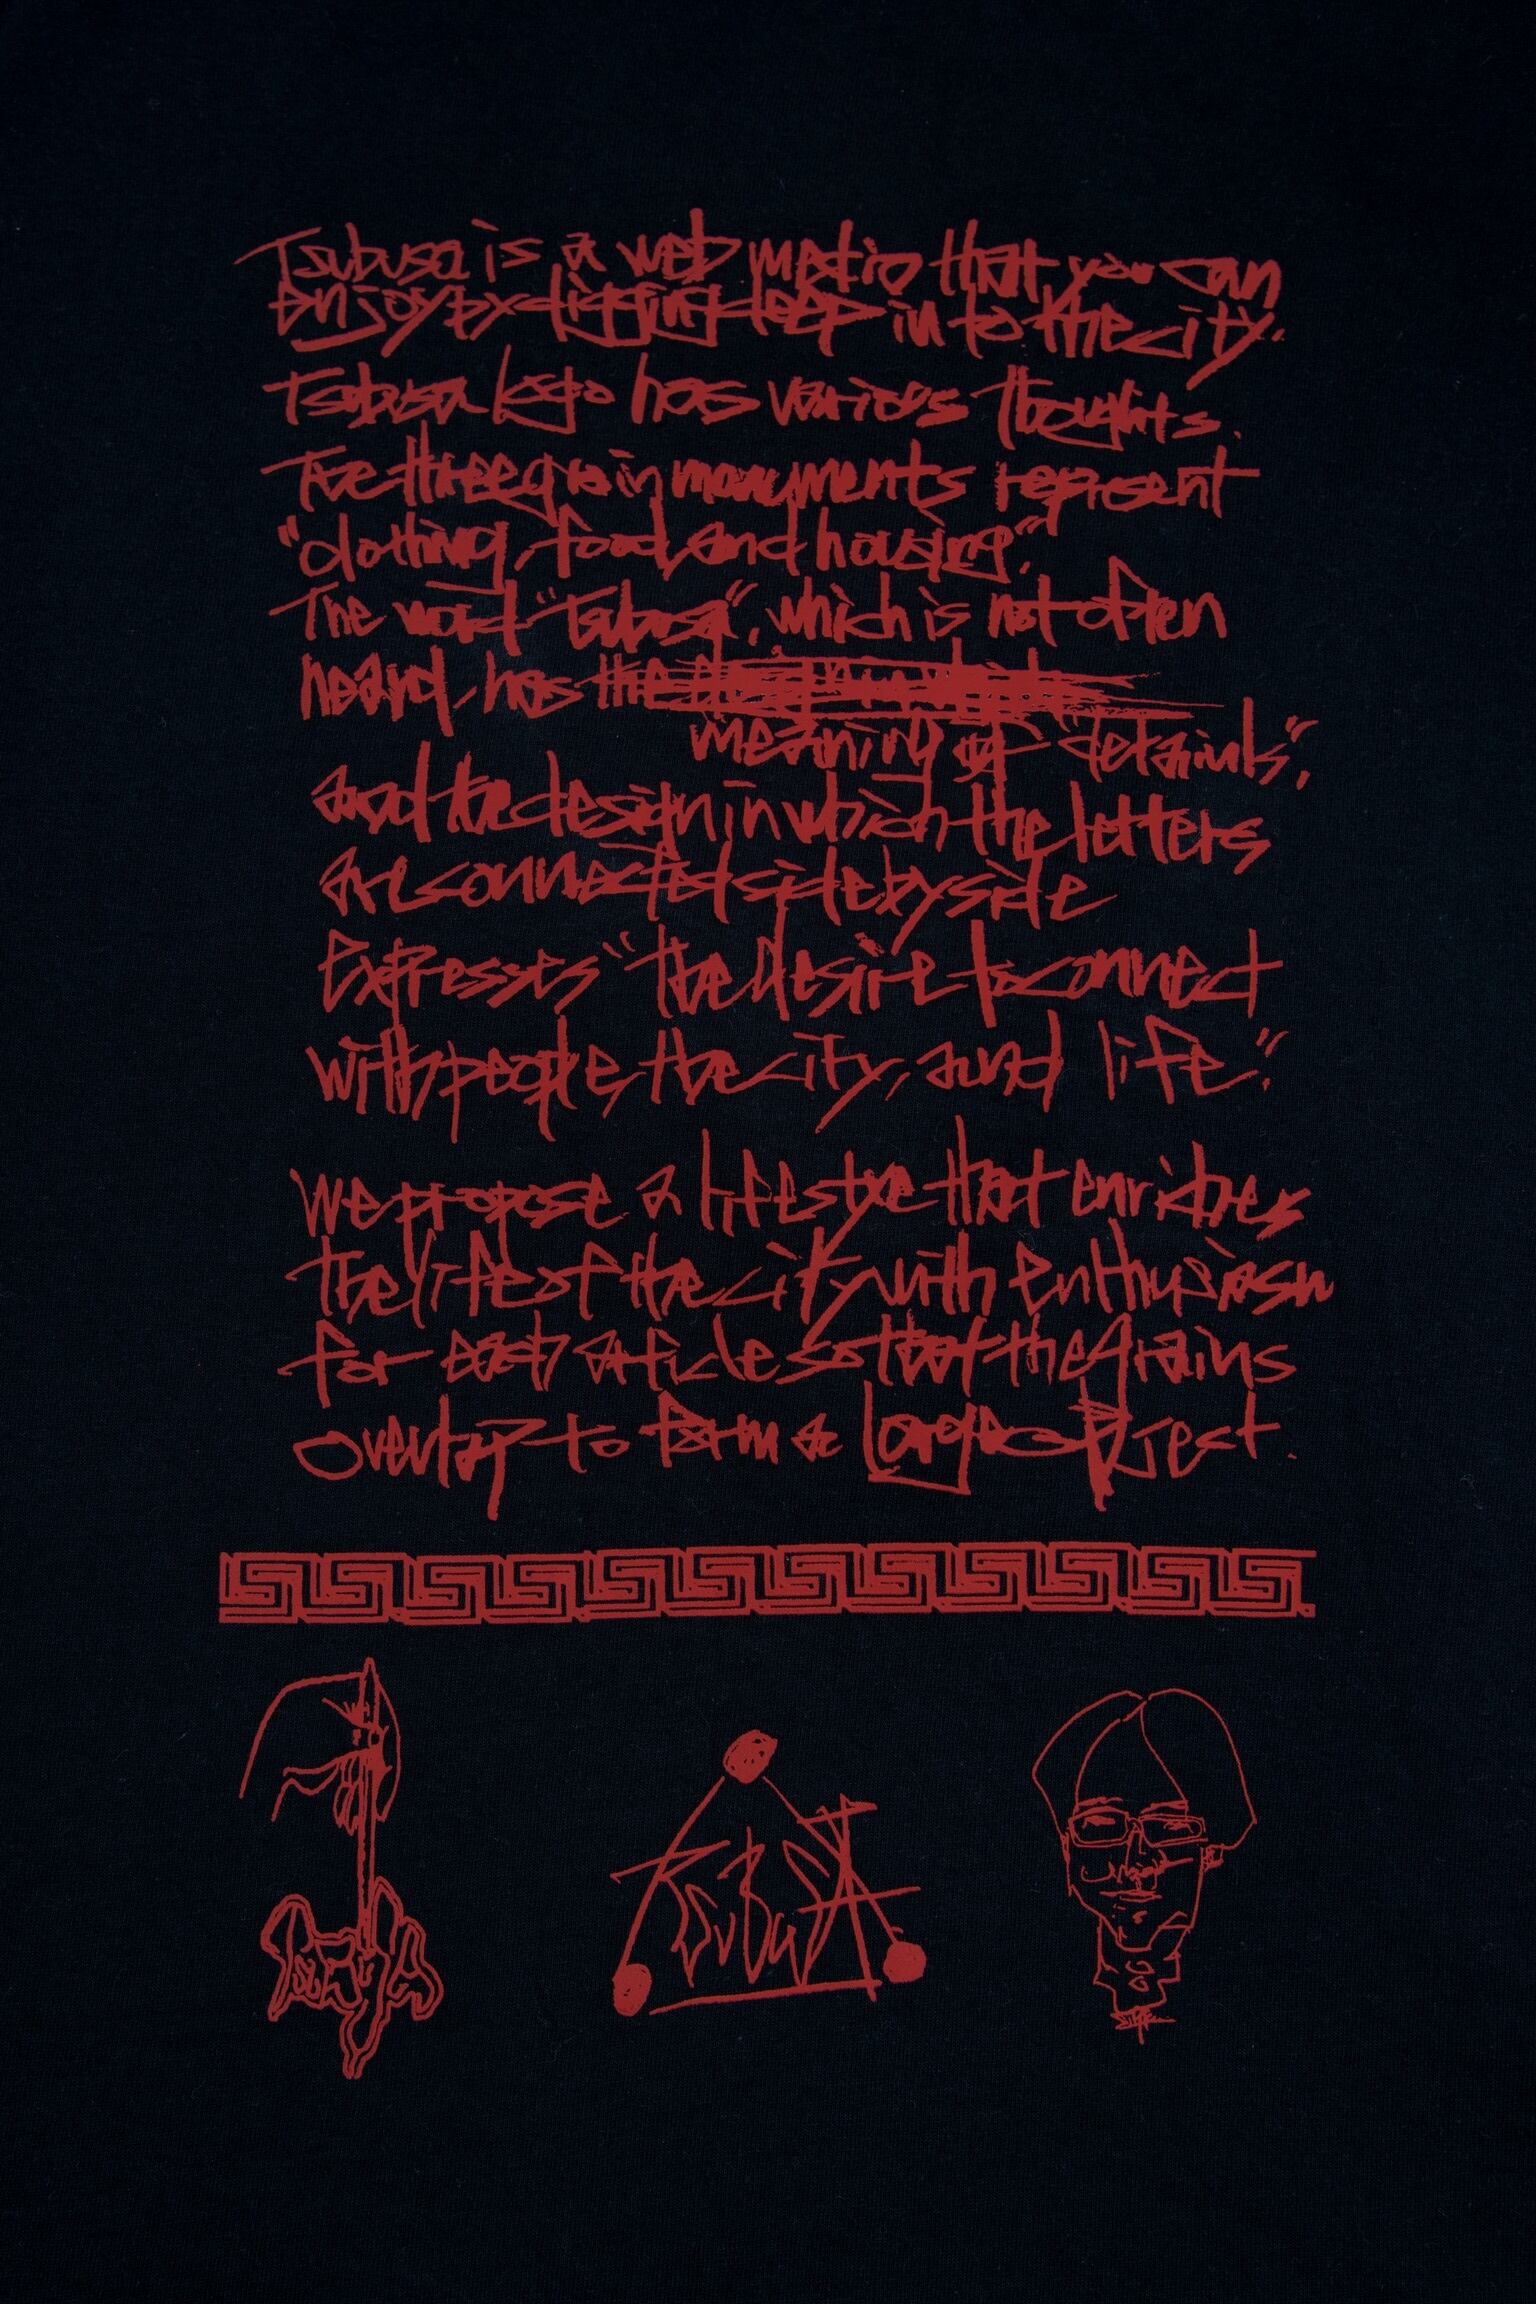 Tsubusa is a web media that you can
enjoy by digging deep in to the city.
Tsubusa logo has various thoughts.
The three grain monuments represent
"clothing, food, and housing".
The word "Tsubusa", which is not often
heard, has the
meaning of "details",
and the design in which the letters
are connected side by side
expresses "the desire to connect
with people, the city, and life."
We propose a lifestyle that enriches
the life of the city with enthusiasm
for each article so that the grains
overlap to form a large object.
TsuBuSA